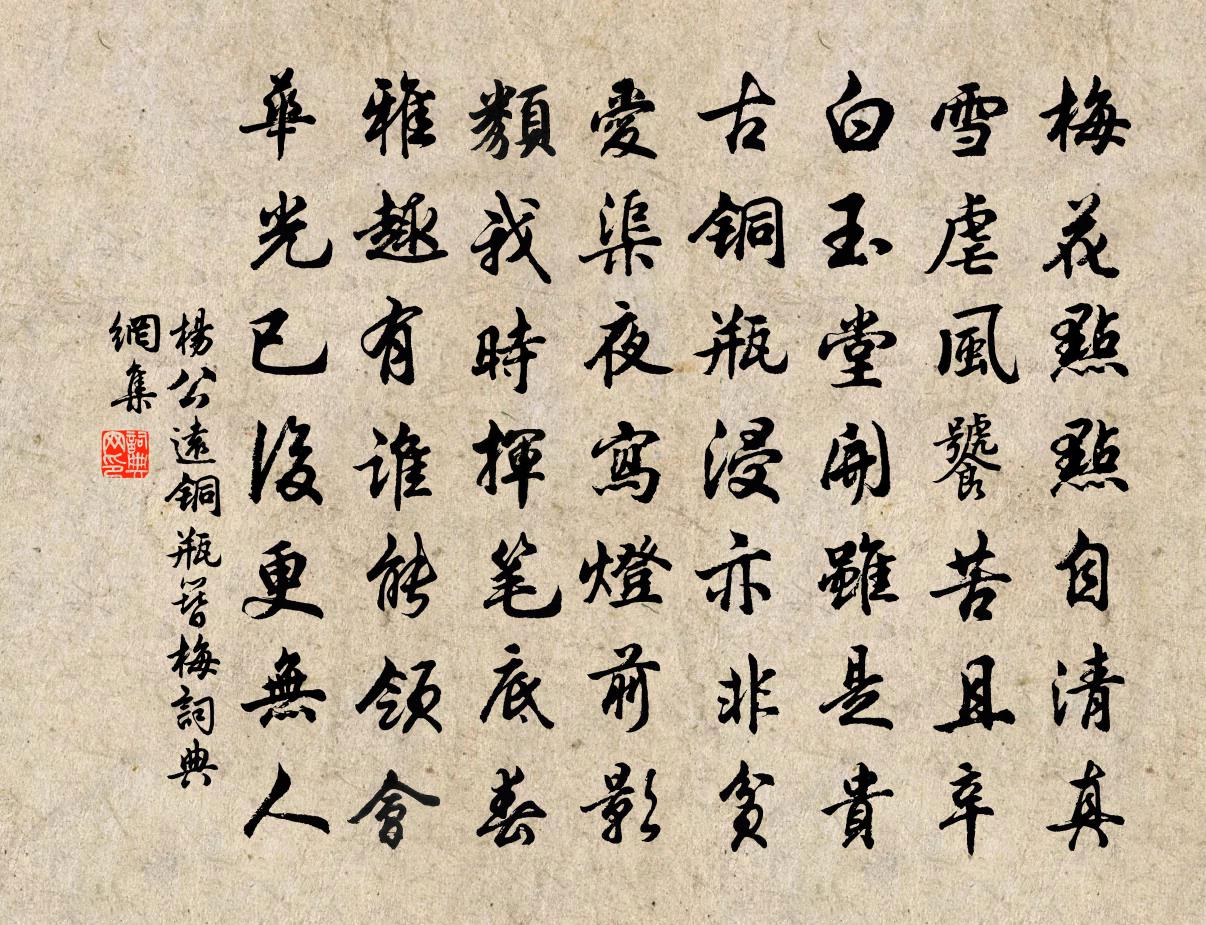 梅花點點自清真
雪虐風饕苦且辛
白玉堂開雖是貴
古銅瓶浸亦非貧
愛渠夜寫燈前影
類我時揮笔底春
雅趣有誰能領會
華光已後更無人
楊公遠銅瓶簪梅詞典
網集
詞典网印